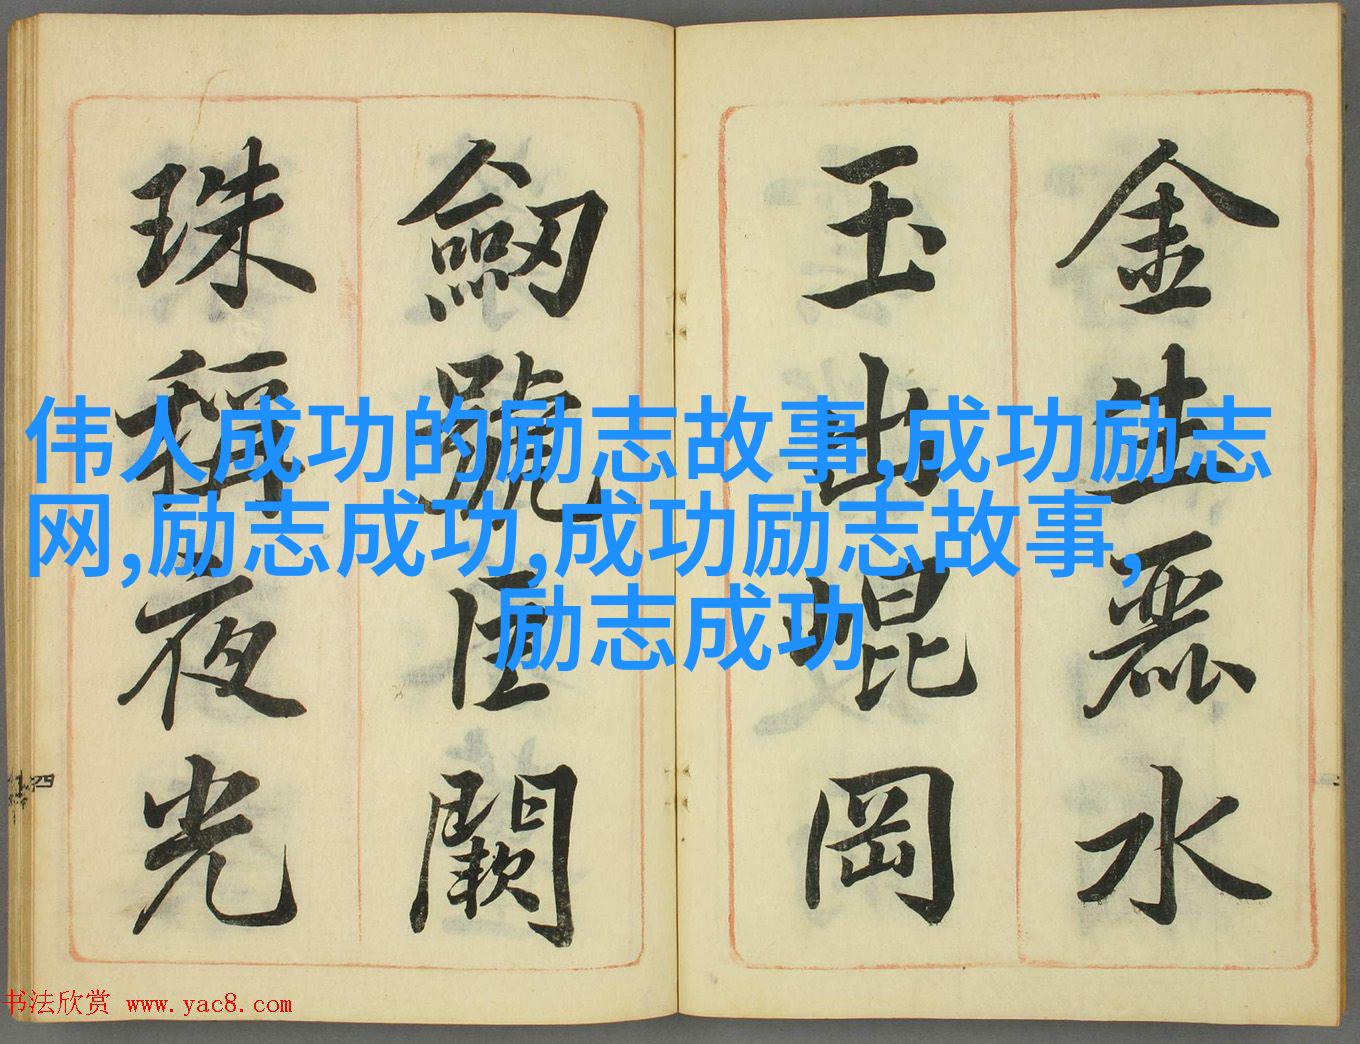 金生麗水
玉出崐岡
劒號巨闕
珠稱夜光
伟人成功的励志故事,成功励志
网,励志成功,成功励志故事,
励志成功
四
书法欣赏 www.yac8.com